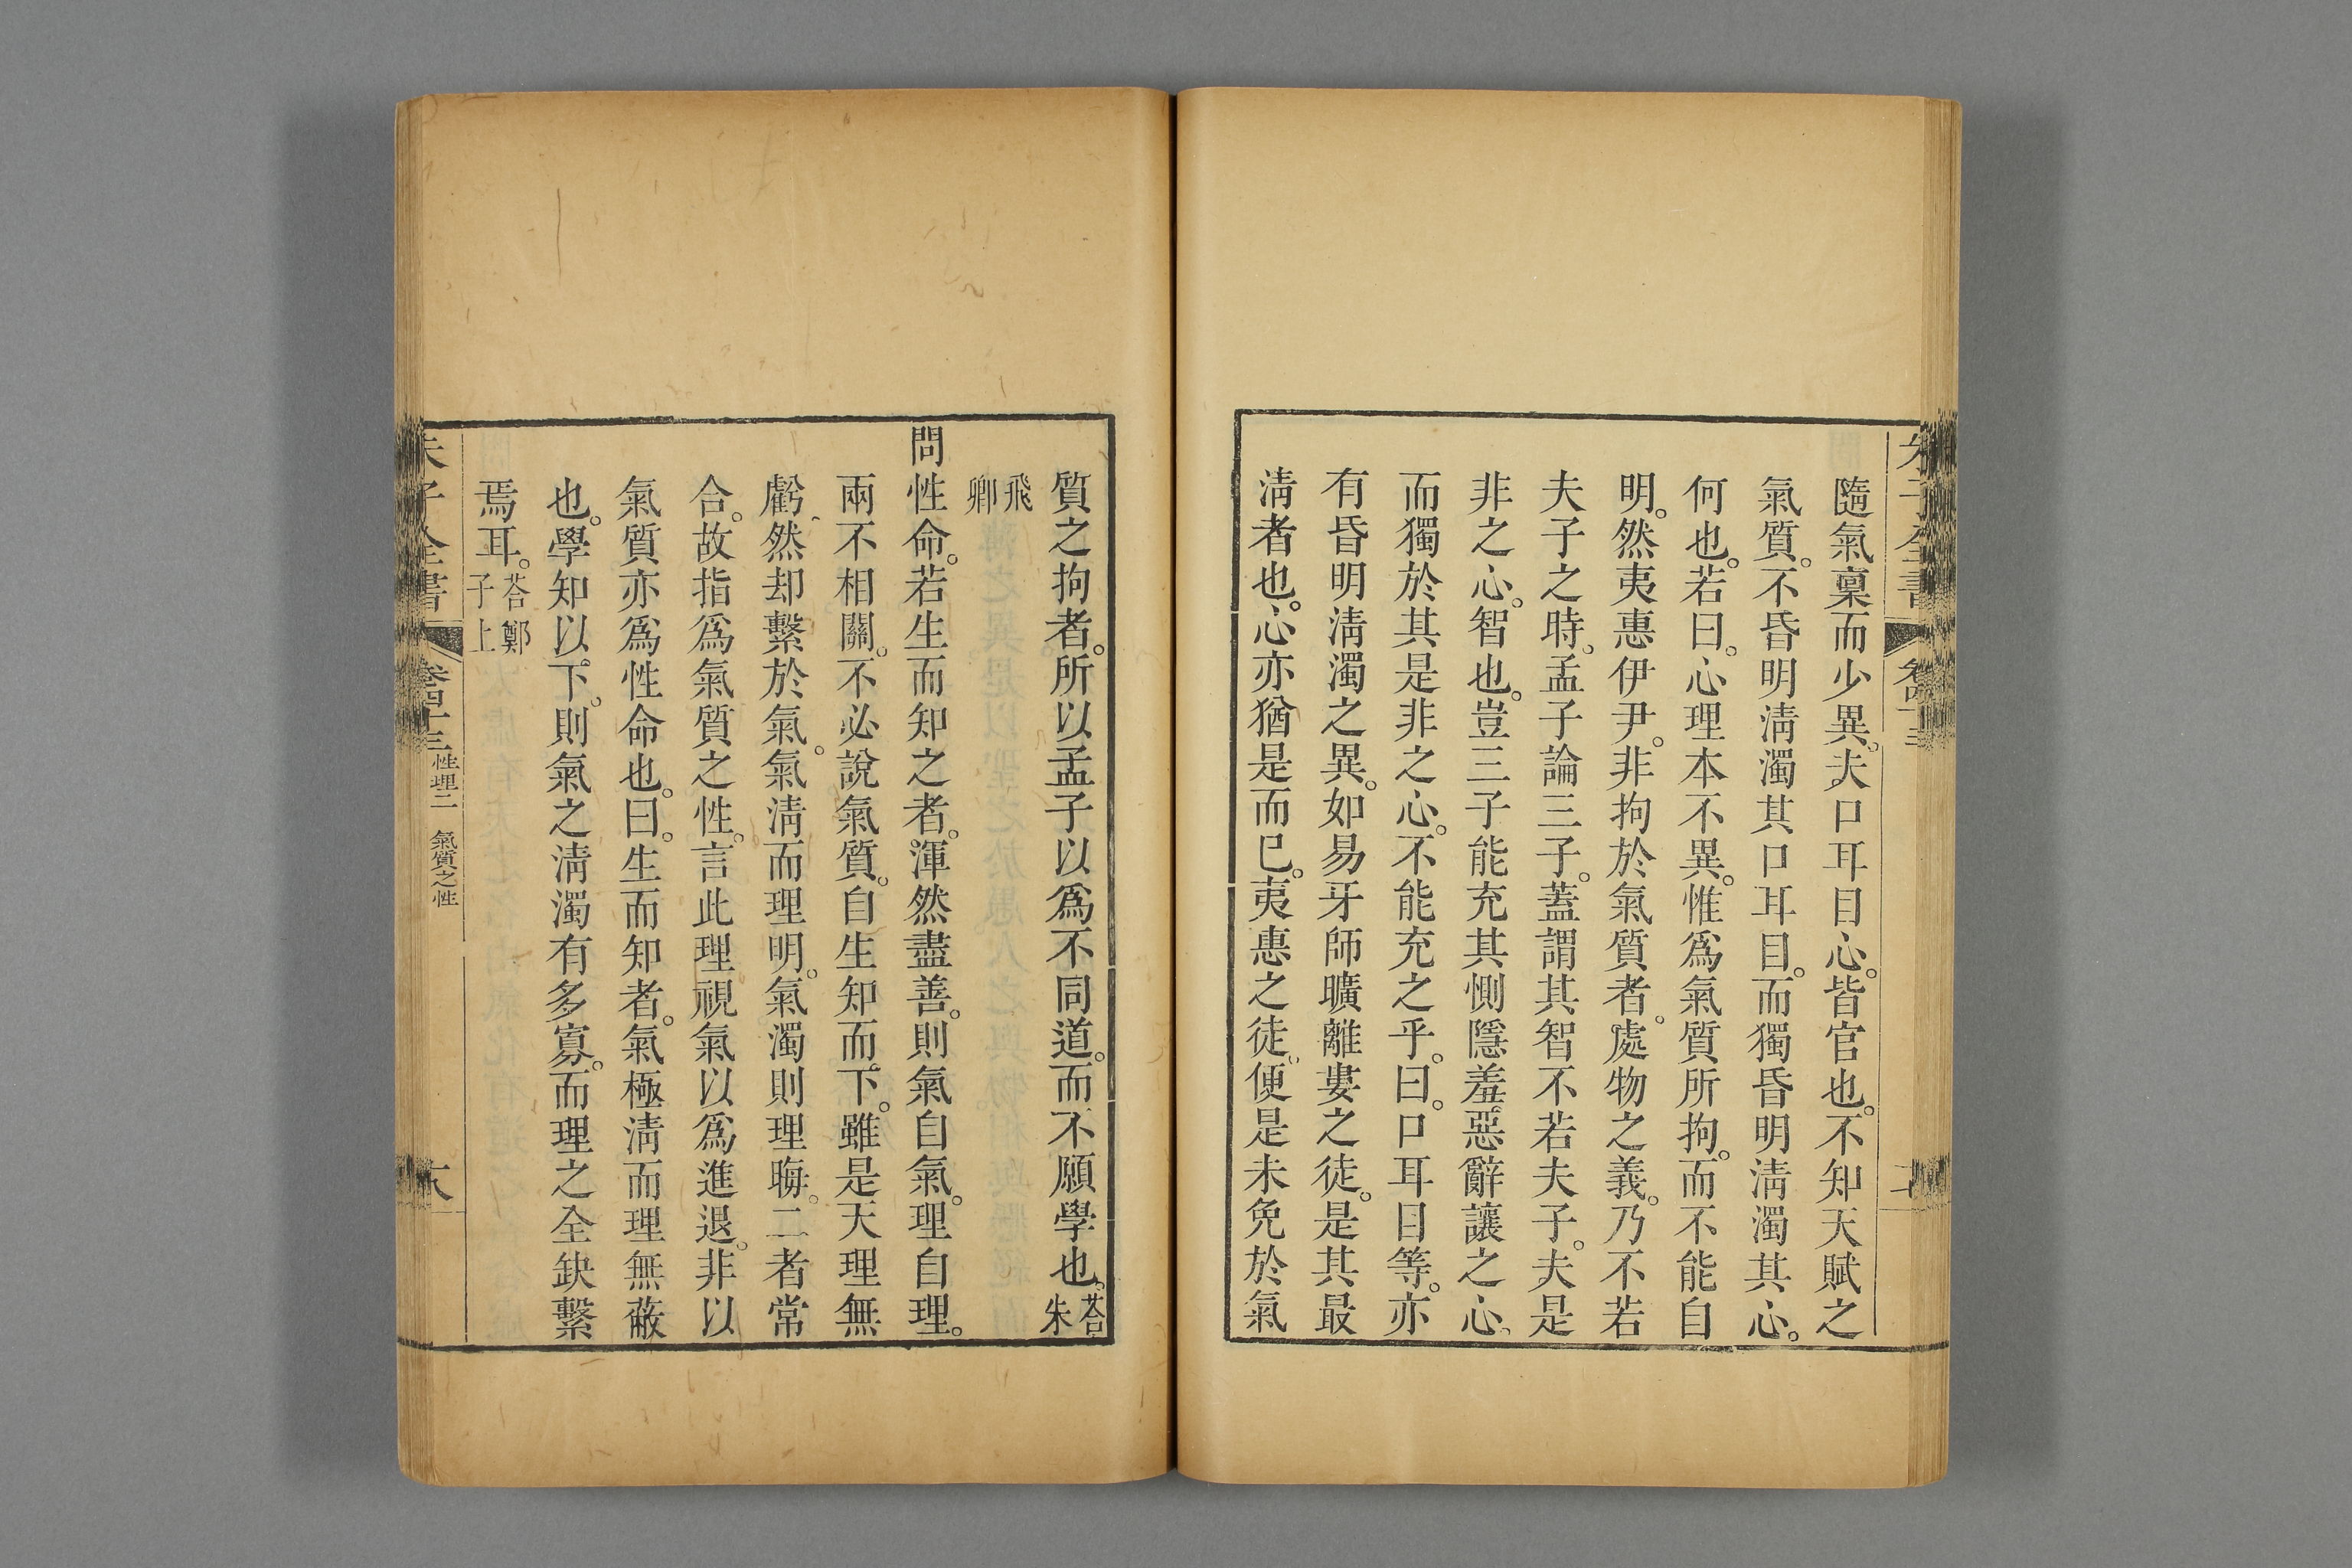 隨氣稟而少異。夫口耳目心。皆官也。不知天賦之
氣質。不昏明淸濁其口耳目。而獨昏明淸濁其心。
何也。若曰。心理本不異。惟爲氣質所拘。而不能自
明。然夷惠伊尹。非拘於氣質者。處物之義。乃不若
夫子之時。孟子論三子。蓋謂其智不若夫子。夫是
非之心。智也。豈三子能充其惻隱羞惡辭讓之心、
而獨於其是非之心。不能充之乎。曰。口耳目等。亦
有昏明淸濁之異。如易牙師曠離婁之徒。是其最
淸者也。心亦猶是而已。夷惠之徒、便是未免於氣
質之拘者。所以孟子以爲不同道。而不願學也。荅朱
飛卿
問性命。若生而知之者。渾然盡善。則氣自氣。理自理。
兩不相關。不必說氣質。自生知而下。雖是天理無
虧、然却繫於氣。氣淸而理明。氣濁則理晦。二者常
合。故指爲氣質之性。言此理視氣以爲進退。非以
氣質亦爲性命也。曰。生而知者。氣極淸而理無蔽
也。學知以下。則氣之淸濁有多寡。而理之全缺繫
焉耳。荅鄭子上
朱子全書 卷四十三 性理二 氣質之性